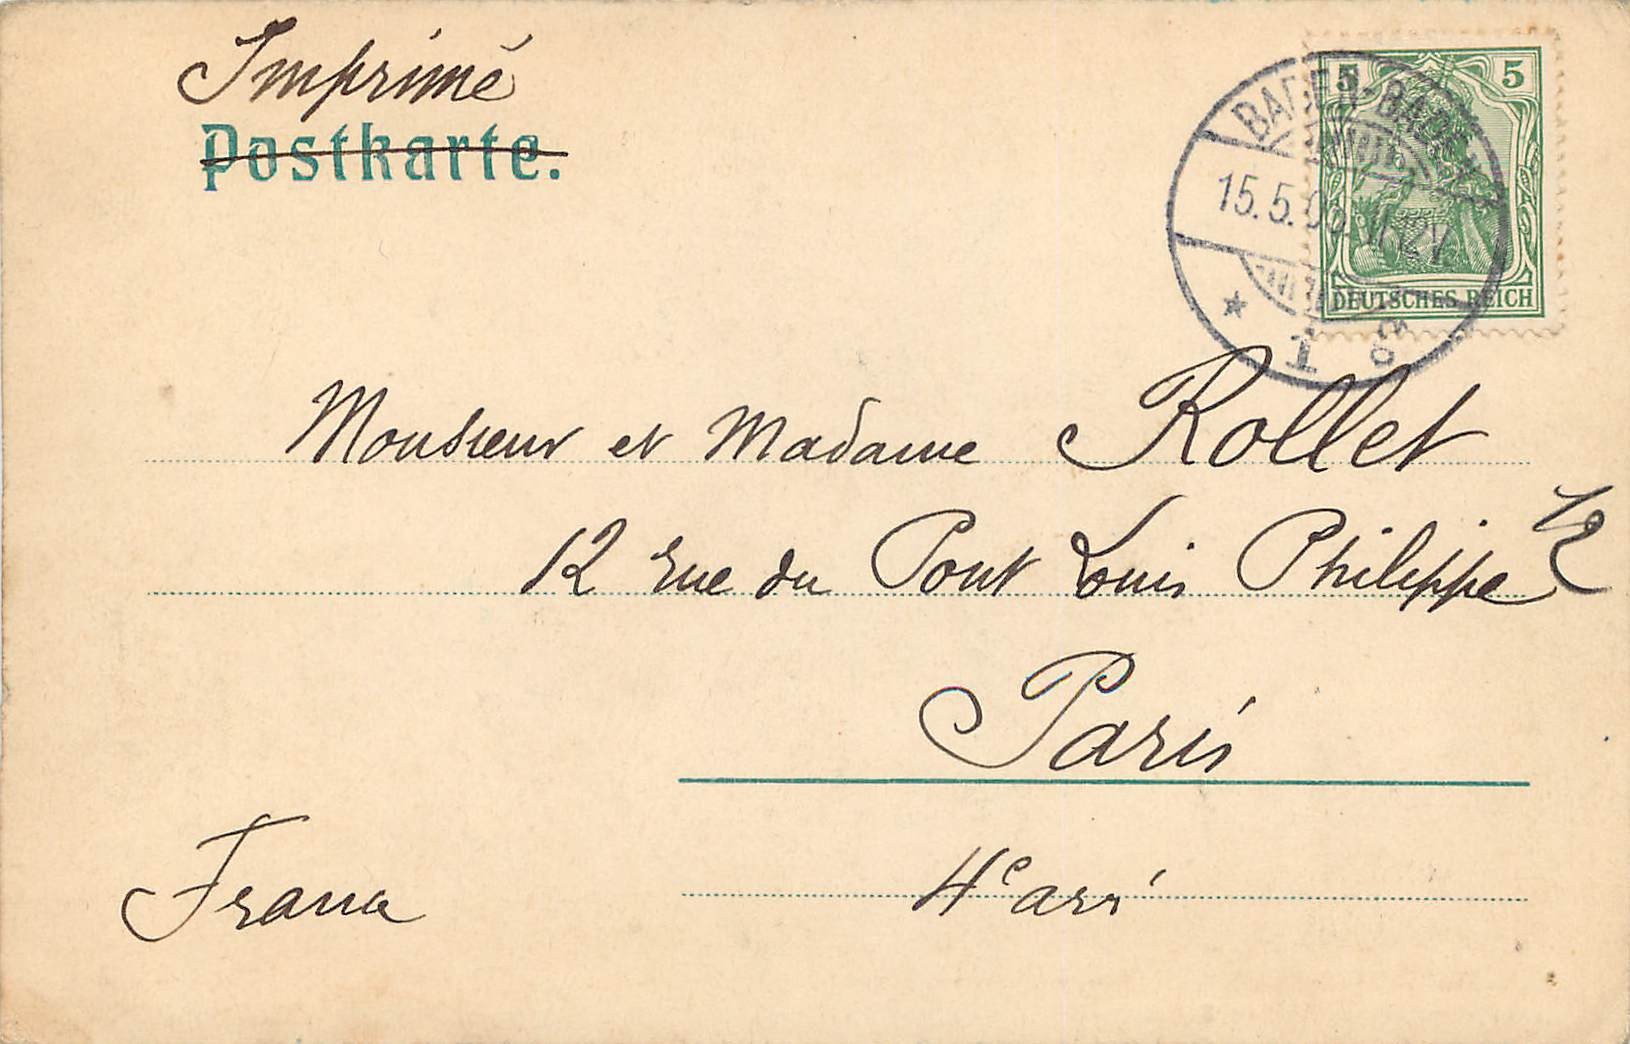 Imprimé
Postkarte.
5 5
BADEN-BADEN
15.5.
DEUTSCHES REICH
1
Monsieur et Madame Rollet
12 rue du Pont Louis Philippe
Paris
4e arrt
France